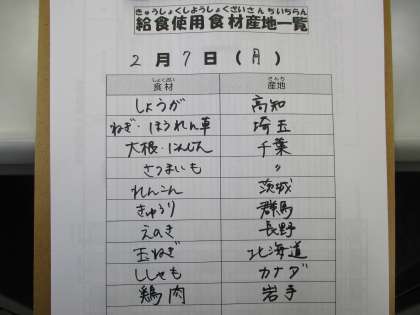 きゅうしょくしようしょくざいさんちいちらん
給食使用食材産地一覧
2月7日(月)
しょくざい さんち
食材 産地
しょうが 高知
ねぎ・ほうれん草 埼玉
大根・にんじん 千葉
さつまいも 〃
れんこん 茨城
きゅうり 群馬
えのき 長野
玉ねぎ 北海道
ししゃも カナダ
鶏肉 岩手